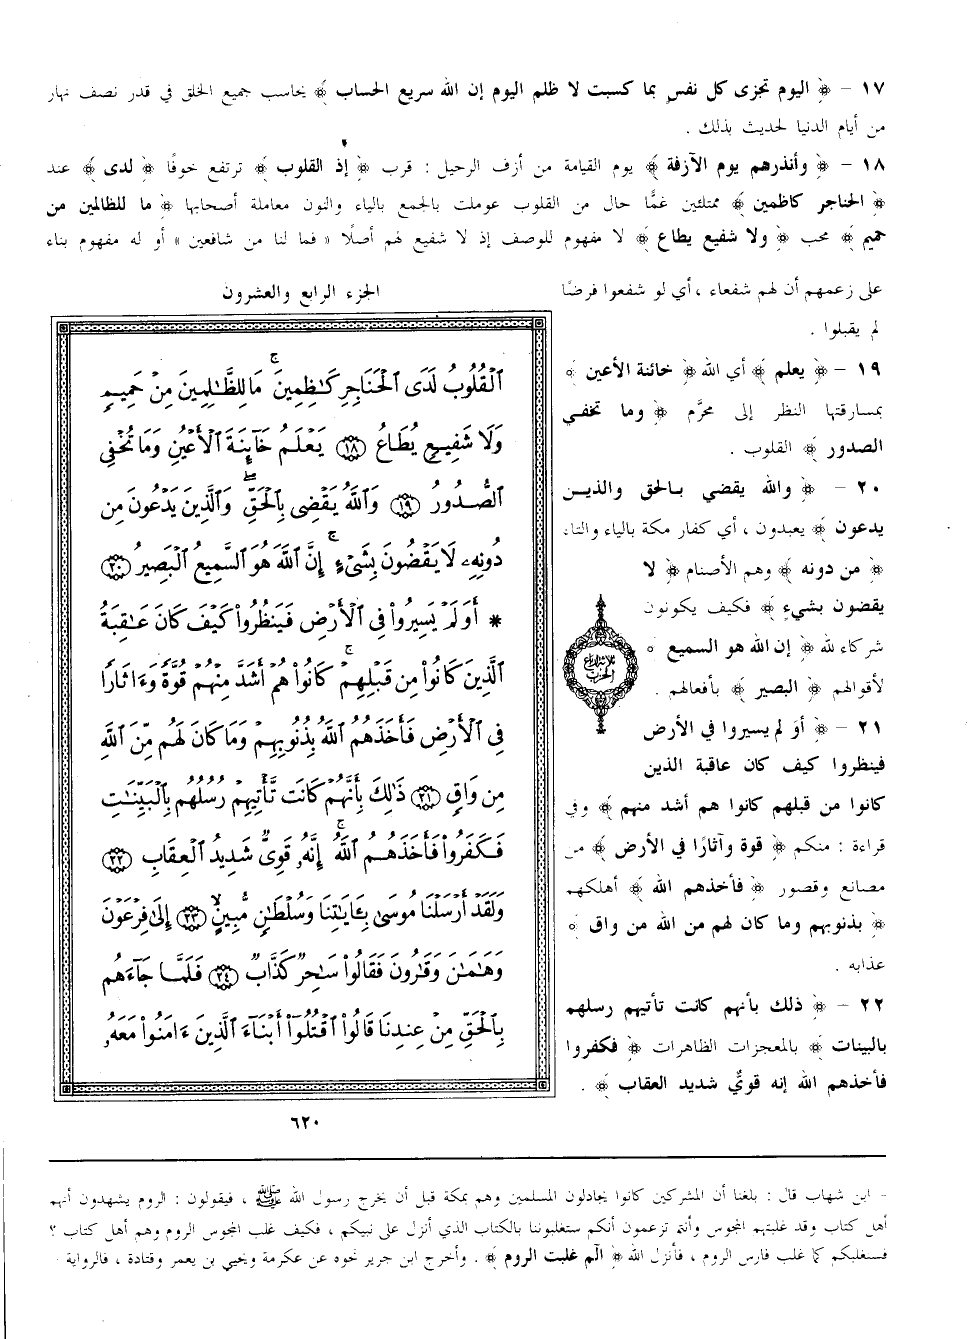 ١٧ - ﴿ اليوم تجزى كل نفس بما كسبت لا ظلم اليوم إن الله سريع الحساب ﴾ يحاسب جميع الخلق في قدر نصف نهار
من أيام الدنيا لحديث بذلك .
١٨ - ﴿ وأنذرهم يوم الآزفة ﴾ يوم القيامة من أزف الرحيل : قرب ﴿ إذ القلوب ﴾ ترتفع خوفًا ﴿ لدى ﴾ عند
﴿ الحناجر كاظمين ﴾ ممتلئين غمًّا حال من القلوب عوملت بالجمع بالياء والنون معاملة أصحابها ﴿ ما للظالمين من
حميم ﴾ محب ﴿ ولا شفيع يطاع ﴾ لا مفهوم للوصف إذ لا شفيع لهم أصلًا « فما لنا من شافعين » أو له مفهوم بناء
على زعمهم أن لهم شفعاء ، أي لو شفعوا فرضًا
لم يقبلوا .
١٩ - ﴿ يعلم ﴾ أي الله ﴿ خائنة الأعين ﴾
بمسارقتها النظر إلى محرَّم ﴿ وما تخفي
الصدور ﴾ القلوب .
٢٠ - ﴿ والله يقضي بالحق والذين
يدعون ﴾ يعبدون ، أي كفار مكة بالياء والتاء
﴿ من دونه ﴾ وهم الأصنام ﴿ لا
يقضون بشيءٍ ﴾ فكيف يكونون
شركاء لله ﴿ إن الله هو السميع ﴾
لأقوالهم ﴿ البصير ﴾ بأفعالهم .
٢١ - ﴿ أوَ لم يسيروا في الأرض
فينظروا كيف كان عاقبة الذين
كانوا من قبلهم كانوا هم أشد منهم ﴾ وفي
قراءة : منكم ﴿ قوة وآثارًا في الأرض ﴾ من
مصانع وقصور ﴿ فأخذهم الله ﴾ أهلكهم
﴿ بذنوبهم وما كان لهم من الله من واق ﴾
عذابه .
٢٢ - ﴿ ذلك بأنهم كانت تأتيهم رسلهم
بالبينات ﴾ بالمعجزات الظاهرات ﴿ فكفروا
فأخذهم الله إنه قويٌّ شديد العقاب ﴾ .
الجزء الرابع والعشرون
ٱلْقُلُوبُ لَدَى ٱلْحَنَاجِرِ كَٰظِمِينَۚ مَا لِلظَّٰلِمِينَ مِنْ حَمِيمٍ
وَلَا شَفِيعٍ يُطَاعُ ﴿١٨﴾ يَعْلَمُ خَآئِنَةَ ٱلْأَعْيُنِ وَمَا تُخْفِى
ٱلصُّدُورُ ﴿١٩﴾ وَٱللَّهُ يَقْضِى بِٱلْحَقِّۖ وَٱلَّذِينَ يَدْعُونَ مِن
دُونِهِۦ لَا يَقْضُونَ بِشَىْءٍۗ إِنَّ ٱللَّهَ هُوَ ٱلسَّمِيعُ ٱلْبَصِيرُ ﴿٢٠﴾
* أَوَلَمْ يَسِيرُوا۟ فِى ٱلْأَرْضِ فَيَنظُرُوا۟ كَيْفَ كَانَ عَٰقِبَةُ
ٱلَّذِينَ كَانُوا۟ مِن قَبْلِهِمْۚ كَانُوا۟ هُمْ أَشَدَّ مِنْهُمْ قُوَّةً وَءَاثَارًا
فِى ٱلْأَرْضِ فَأَخَذَهُمُ ٱللَّهُ بِذُنُوبِهِمْ وَمَا كَانَ لَهُم مِّنَ ٱللَّهِ
مِن وَاقٍ ﴿٢١﴾ ذَٰلِكَ بِأَنَّهُمْ كَانَت تَّأْتِيهِمْ رُسُلُهُم بِٱلْبَيِّنَٰتِ
فَكَفَرُوا۟ فَأَخَذَهُمُ ٱللَّهُۚ إِنَّهُۥ قَوِىٌّ شَدِيدُ ٱلْعِقَابِ ﴿٢٢﴾
وَلَقَدْ أَرْسَلْنَا مُوسَىٰ بِـَٔايَٰتِنَا وَسُلْطَٰنٍ مُّبِينٍ ﴿٢٣﴾ إِلَىٰ فِرْعَوْنَ
وَهَٰمَٰنَ وَقَٰرُونَ فَقَالُوا۟ سَٰحِرٌ كَذَّابٌ ﴿٢٤﴾ فَلَمَّا جَآءَهُم
بِٱلْحَقِّ مِنْ عِندِنَا قَالُوا۟ ٱقْتُلُوٓا۟ أَبْنَآءَ ٱلَّذِينَ ءَامَنُوا۟ مَعَهُۥ
ثلاثة أرباع
الحزب
٦٢٠
- ابن شهاب قال : بلغنا أن المشركين كانوا يجادلون المسلمين وهم بمكة قبل أن يخرج رسول الله ﷺ ، فيقولون : الروم يشهدون أنهم
أهل كتاب وقد غلبتهم المجوس وأنتم تزعمون أنكم ستغلبوننا بالكتاب الذي أنزل على نبيكم ، فكيف غلب المجوس الروم وهم أهل كتاب ؟
فسنغلبكم كما غلب فارس الروم ، فأنزل الله ﴿ الٓم غلبت الروم ﴾ . وأخرج ابن جرير نحوه عن عكرمة ويحيى بن يعمر وقتادة ، فالرواية